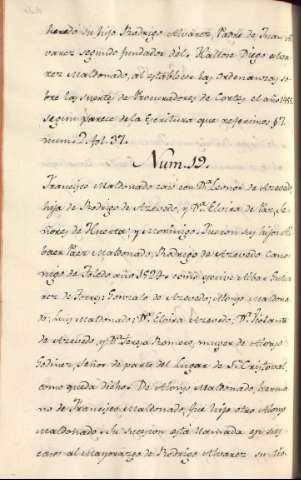 heredó su hijo Rodrigo Alvarez, Padre de Juan Al-
varez segundo fundador del Maltose Diego Alva-
rez Maldonado, al establecer las Ordenanzas so-
bre las suertes de Procuradores de Cortes el año 1455.
segun parece de la Escritura que referimos pr.
num. 2. fol. 37.
Num. 19.
Francisco Maldonado casó con Dª Leonor de Azevedo,
hija de Rodrigo de Azevedo, y Dª Elvira de Paz, Se-
ñores de Huerta, y Moñivigo. Fueron sus hijos Al-
baer Paez Maldonado, Rodrigo de Azevedo Cano-
nigo de Toledo año 1529. como escrive Albar Gutie-
rez de Torres, Gonzalo de Azevedo, Alonso Maldona-
do, Luis Maldonado, Dª Elvira Azevedo, Dª Violante
de Azevedo, y Dª Teresa Romero, muger de Alonso
Godinez, Señor de parte del Lugar de Sn Cristoval,
como queda dicho. De Alonso Maldonado, herma-
no de Francisco Maldonado, fue hijo otro Alonso
Maldonado. Su sucesion está llamada en su
caso al Mayorazgo de Rodrigo Alvarez su tio.